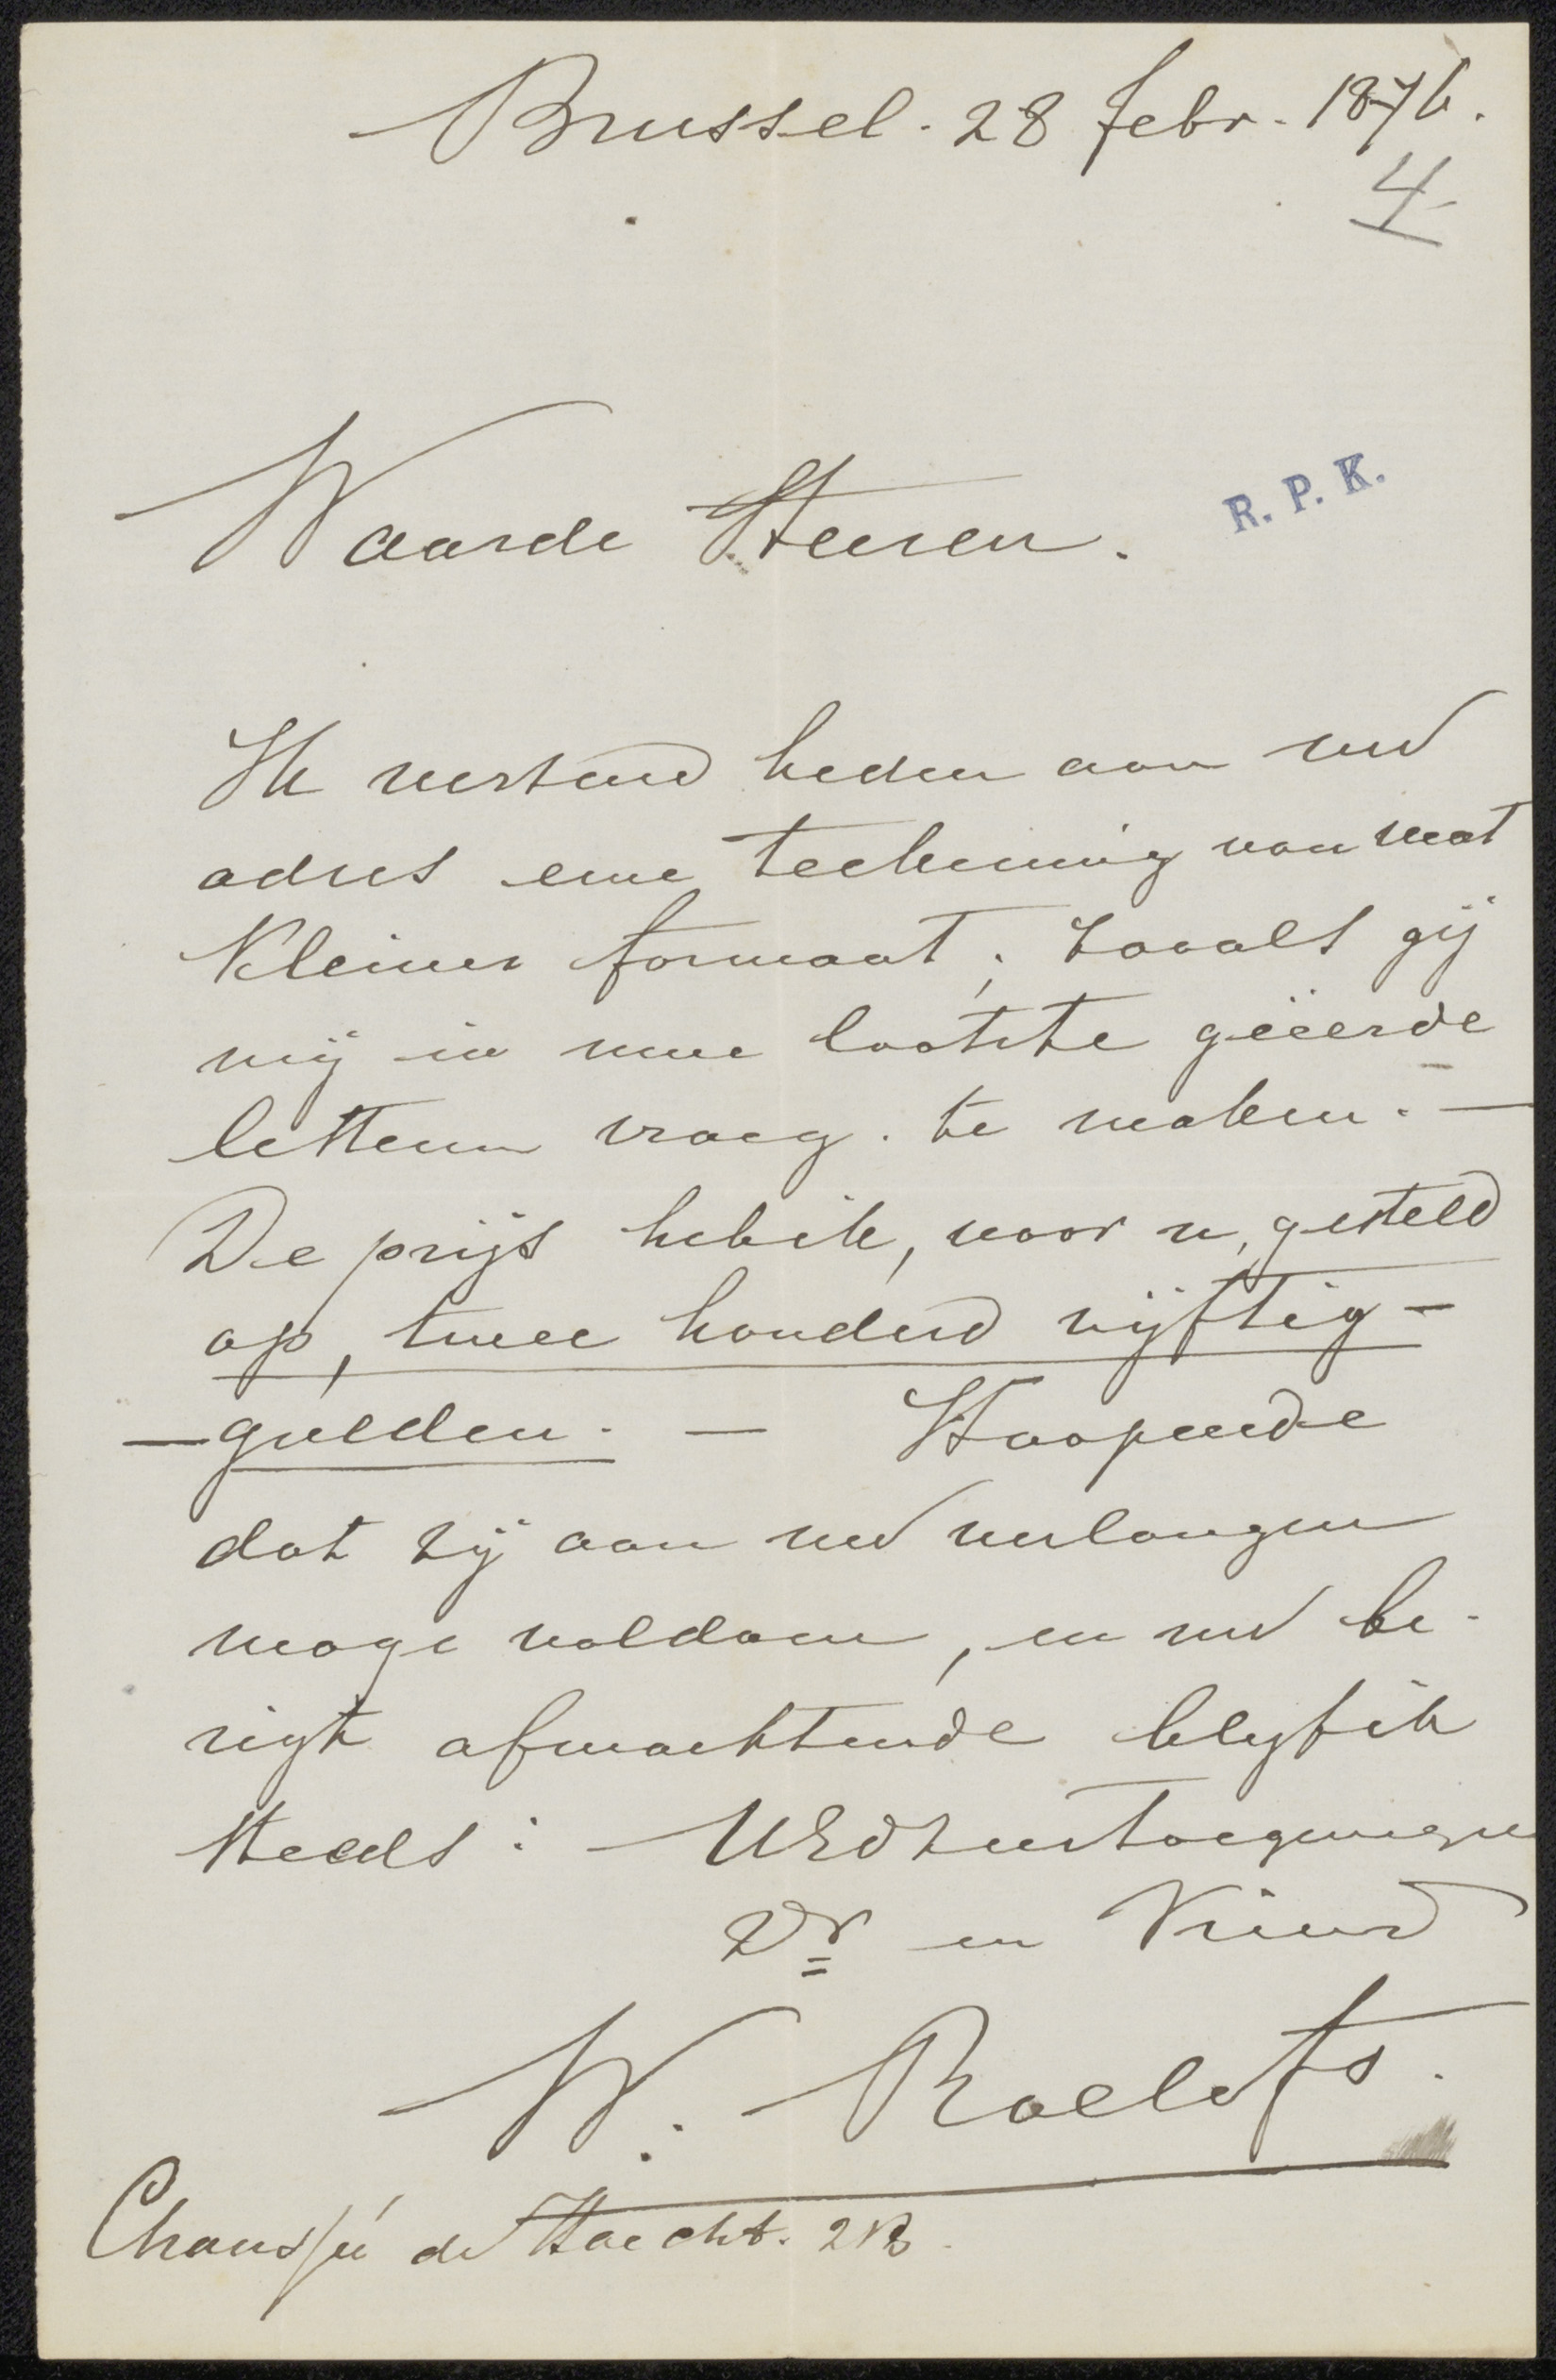 Brussel. 28 febr. 1876.
4
Waarde Heeren.
R. P. K.
Ik verzend heden aan uw
adres eene teekening van wat
Kleiner formaat, zooals gij
mij in uwe laatste geëerde
letteren vraag. te maken. —
De prijs heb ik, voor u, gesteld
op, twee honderd vijftig —
— gulden. — Hoopende
dat zij aan uw verlangen
moge voldoen, en uw be-
rigt afwachtende blijf ik
steeds: UEdZeertoegenegen
Dr en Vriend
W. Roelofs.
Chaussée de Haecht.